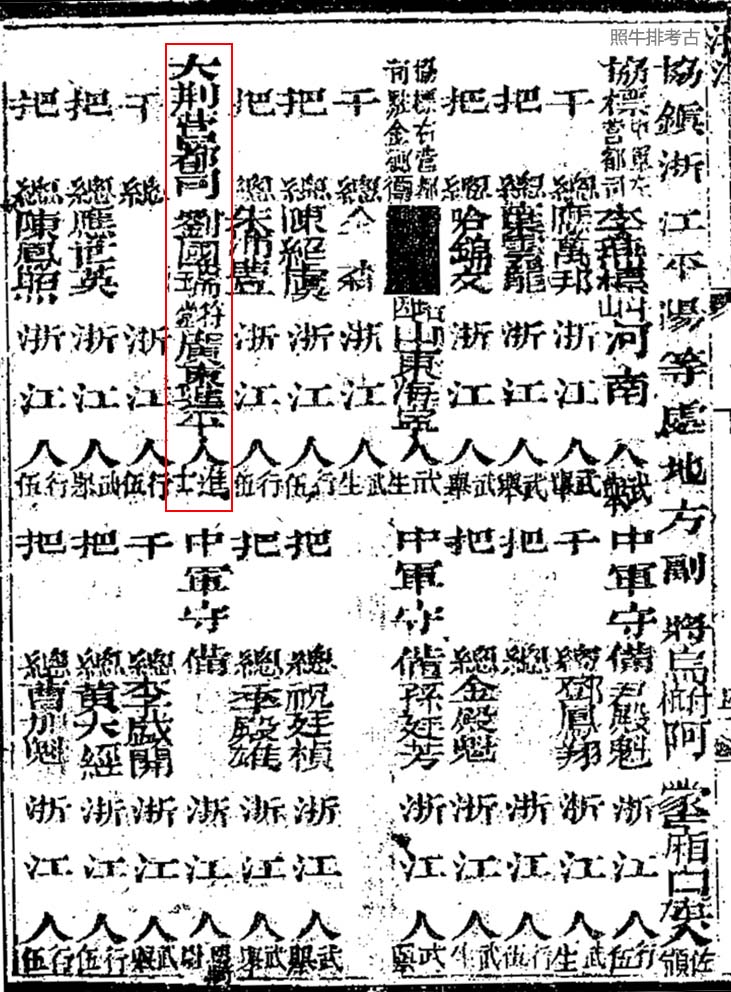 照牛排考古
協鎮浙江平陽等處地方副將烏阿蒙廂白旗人佐領
協標中軍左營都司李標河南人武舉
中軍守備殿魁浙江人行伍
千總應萬邦浙江人武舉
千總鄧鳳翔浙江人武生
把總葉雲龍浙江人武舉
把總浙江人行伍
把總哈錦文浙江人武舉
把總金殿魁浙江人武生
協標右營都司駐金鄉衛山東海人武生
中軍守備孫廷芳浙江人武舉
千總全森浙江人武生
把總陳紹虞浙江人行伍
把總祝廷楨浙江人武舉
把總朱沛豊浙江人行伍
把總王殿雄浙江人武舉
大荆營都司劉國瑞符堂廣東連平人進士
中軍守備浙江人
千總浙江人行伍
千總李盛開浙江人武舉
把總應世英浙江人武舉
把總黃大經浙江人行伍
把總陳鳳照浙江人行伍
把總曹加魁浙江人行伍